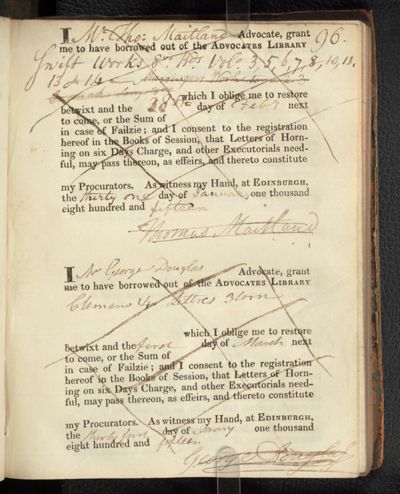 96.
I Mr Tho: Maitland Advocate, grant
me to have borrowed out of the ADVOCATES LIBRARY
Swift Works 8vo Vols. 3, 5, 6, 7, 8, 10, 11,
13 & 14
which I oblige me to restore
betwixt and the 28th day of Feby next
to come, or the Sum of
in case of Failzie; and I consent to the registration
hereof in the Books of Session, that Letters of Horn-
ing on six Days Charge, and other Executorials need-
ful, may pass thereon, as effeirs, and thereto constitute
my Procurators. As witness my Hand, at EDINBURGH,
the thirty one day of January one thousand
eight hundred and fifteen
Thomas Maitland
I Mr George Douglas Advocate, grant
me to have borrowed out of the ADVOCATES LIBRARY
Letters 3 tom
which I oblige me to restore
betwixt and the first day of March next
to come, or the Sum of
in case of Failzie; and I consent to the registration
hereof in the Books of Session, that Letters of Horn-
ing on six Days Charge, and other Executorials need-
ful, may pass thereon, as effeirs, and thereto constitute
my Procurators. As witness my Hand, at EDINBURGH,
the thirty first day of Janry one thousand
eight hundred and fifteen
George Douglas